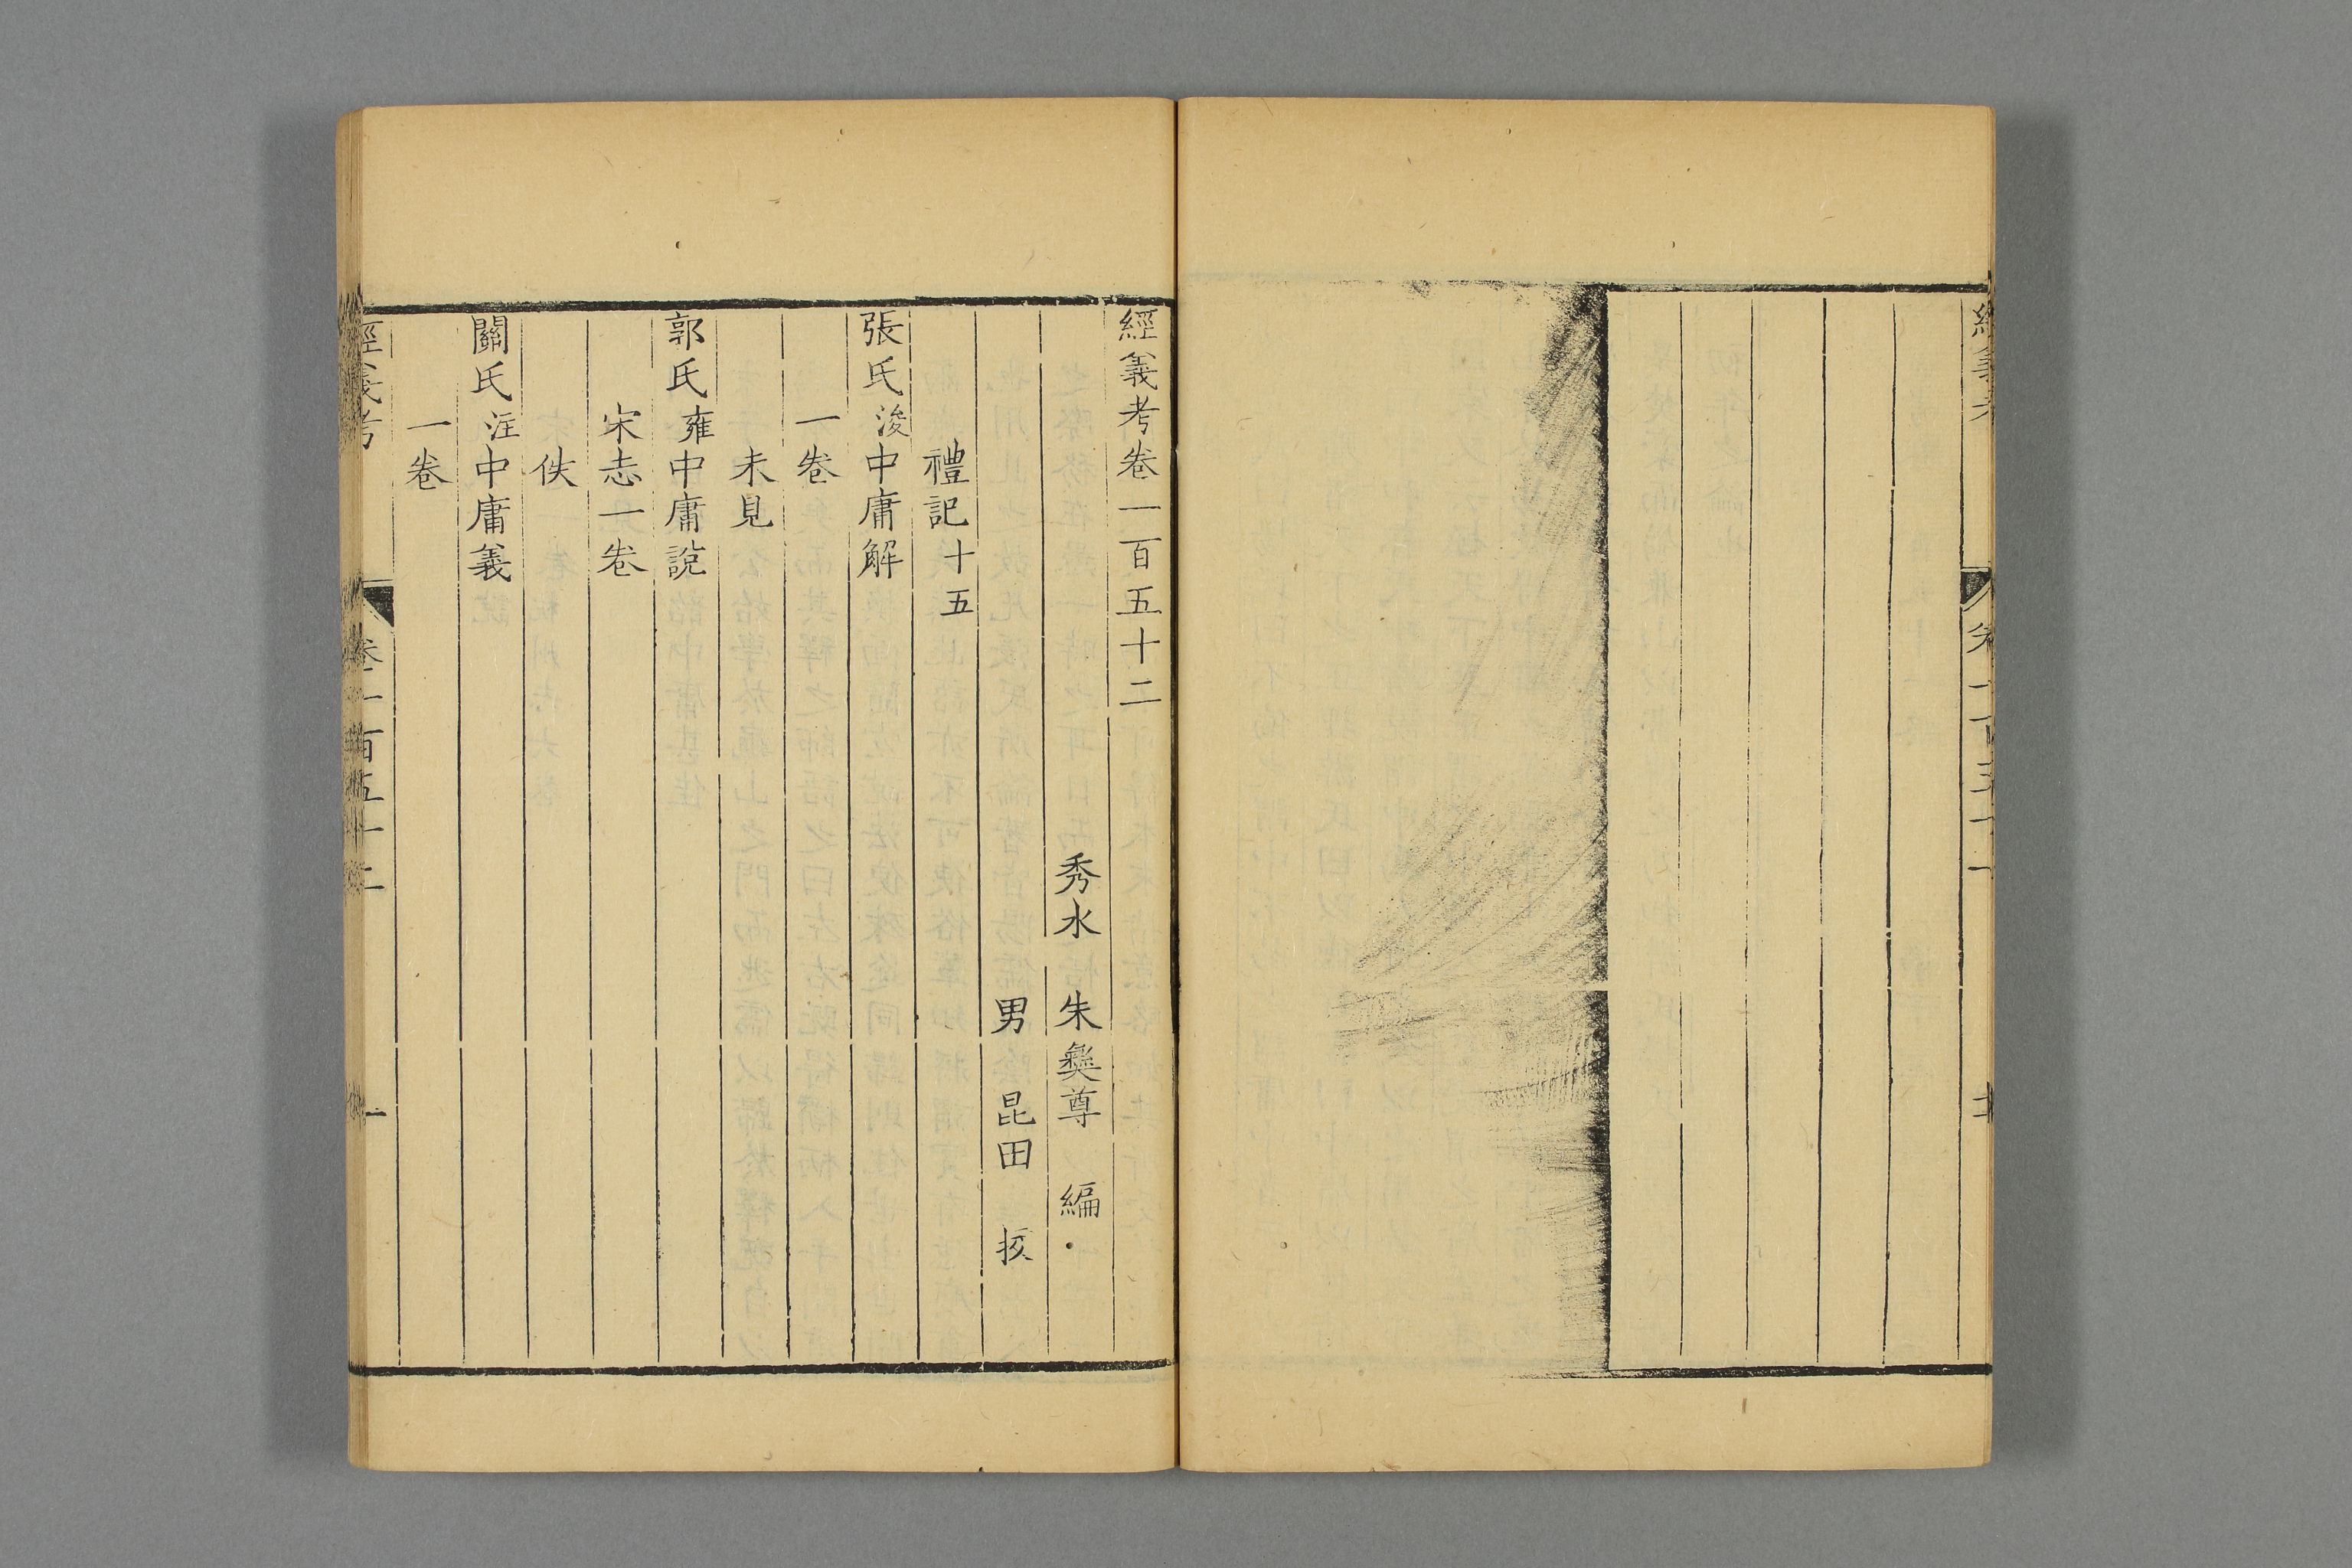 經義考卷一百五十二
秀水 朱彝尊 編
男 昆田 挍
禮記十五
張氏浚中庸解
一卷
未見
郭氏雍中庸說
宋志一卷
佚
關氏注中庸義
一卷
經義考 卷一百五十二 一